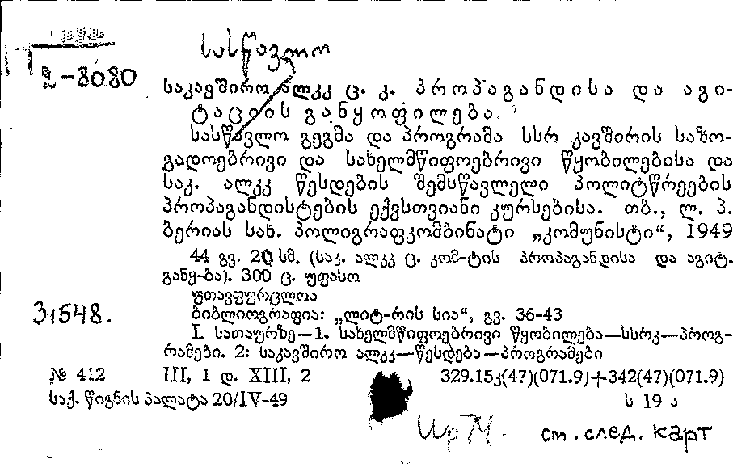 სასწავლო
2-8080
საკავშირო ალკკ ც. კ. პროპაგანდისა და აგი-
ტაციის განყოფილება.
სასწავლო გეგმა და პროგრამა სსრ კავშირის საზო-
გადოებრივი და სახელმწიფოებრივი წყობილებისა და
საკ. ალკკ წესდების შემსწავლელი პოლიტწრეების
პროპაგანდისტების ექვსთვიანი კურსებისა. თბ., ლ. პ.
ბერიას სახ. პოლიგრაფკომბინატი „კომუნისტი“, 1949
44 გვ. 20 სმ. (საკ. ალკკ ც. კომ-ტის პროპაგანდისა და აგიტ-
განყ-ბა). 300 ც. უფასო
უთავფურცლოა
31548.
ბიბლიოგრაფია: „ლიტ-რის სია“, გვ. 36-43
I. სათაურზე—1. სახელმწიფოებრივი წყობილება—სსრკ—პროგ-
რამები. 2: საკავშირო ალკკ—წესდება—პროგრამები
№ 412 III, 1 დ. XIII, 2 329.15კ(47)(071.9)+342(47)(071.9)
საქ. წიგნის პალატა 20/IV-49 ს 19 ა
см. след. карт